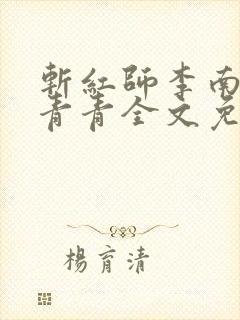 斬紅師李南
青青全文免
楊育清